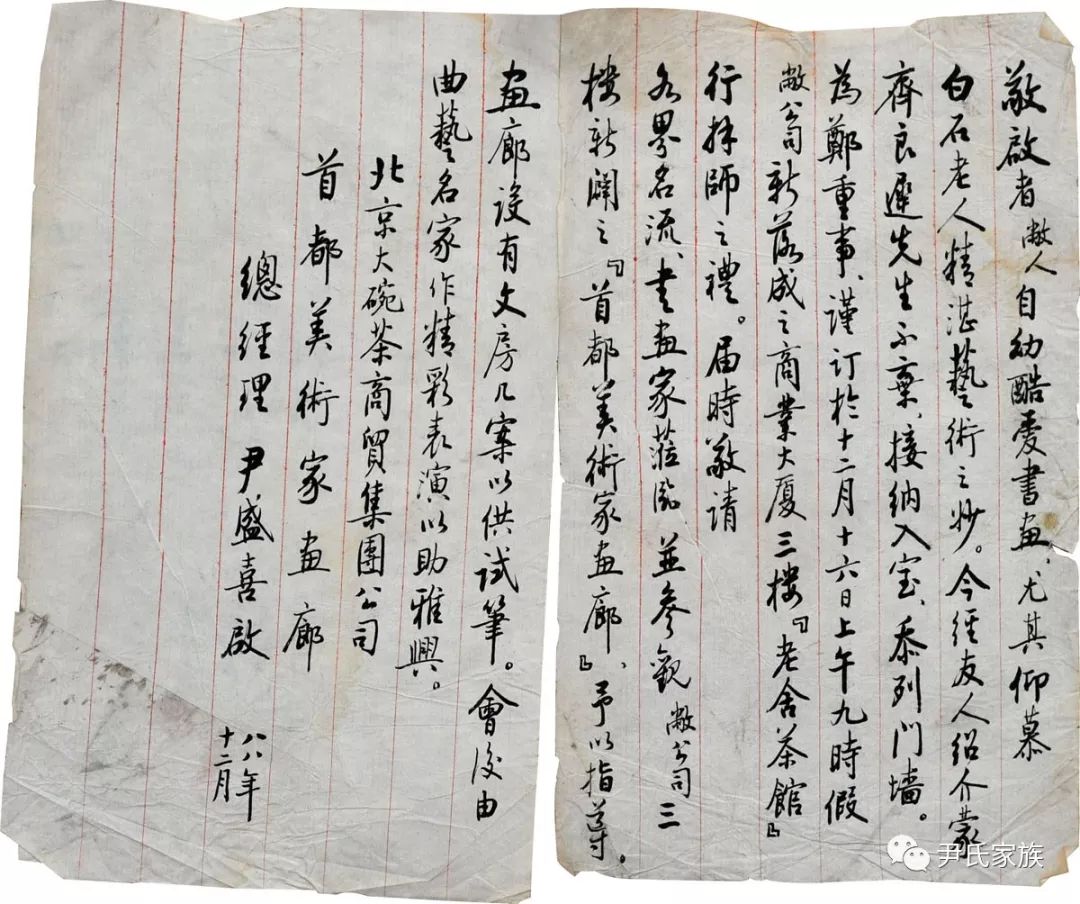 敬啟者敝人自幼酷愛書画、尤其仰慕
白石老人精湛藝術之妙。今經友人紹介蒙
齊良遲先生不棄、接纳入室、忝列门墙。
為鄭重事、謹订於十二月十六日上午九時假
敝公司新落成之商業大厦三楼『老舍茶館』
行拜師之禮。届時敬请
各界名流、书画家蒞临並參觀敝公司三
楼新闢之『首都美術家画廊』、予以指导。
画廊設有文房几案以供試筆。會後由
曲藝名家作精彩表演以助雅興。
北京大碗茶商貿集團公司
首都美術家画廊
總經理尹盛喜啟
八八年
十二月
尹氏家族